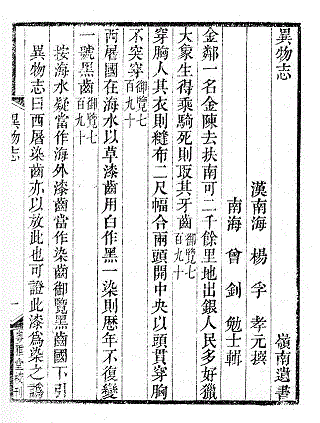 異物志
嶺南遺書
漢南海楊孚孝元撰
南海曾釗勉士輯
金鄰一名金陳去扶南可二千餘里地出銀人民多好獵
大象生得乘騎死則取其牙齒御覽七百九十
穿胸人其衣則縫布二尺幅合兩頭開中央以頭貫穿胸
不突穿御覽七百九十
西屠國在海水以草漆齒用白作黑一染則歷年不復變
一號黑齒御覽七百九十
按海水疑當作海外漆齒當作染齒御覽黑齒國下引
異物志曰西屠染齒亦以放此也可證此漆爲染之譌
異物志
一
粵雅堂校刊